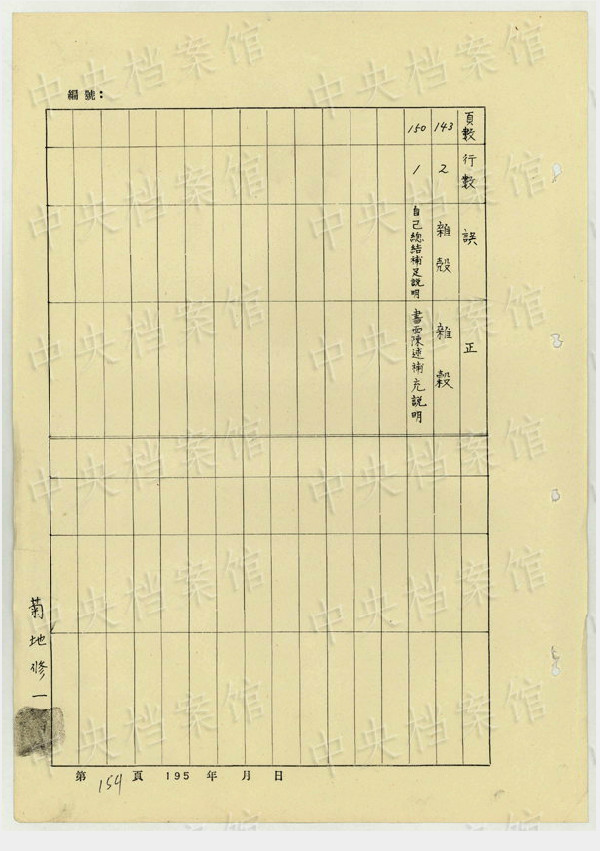 編號：
頁數 行數 誤 正
143 2 雜殼 雜穀
150 1 自己總結補足說明 書面陳述補充說明
菊地修一
第 154 頁 195 年 月 日
中央档案馆